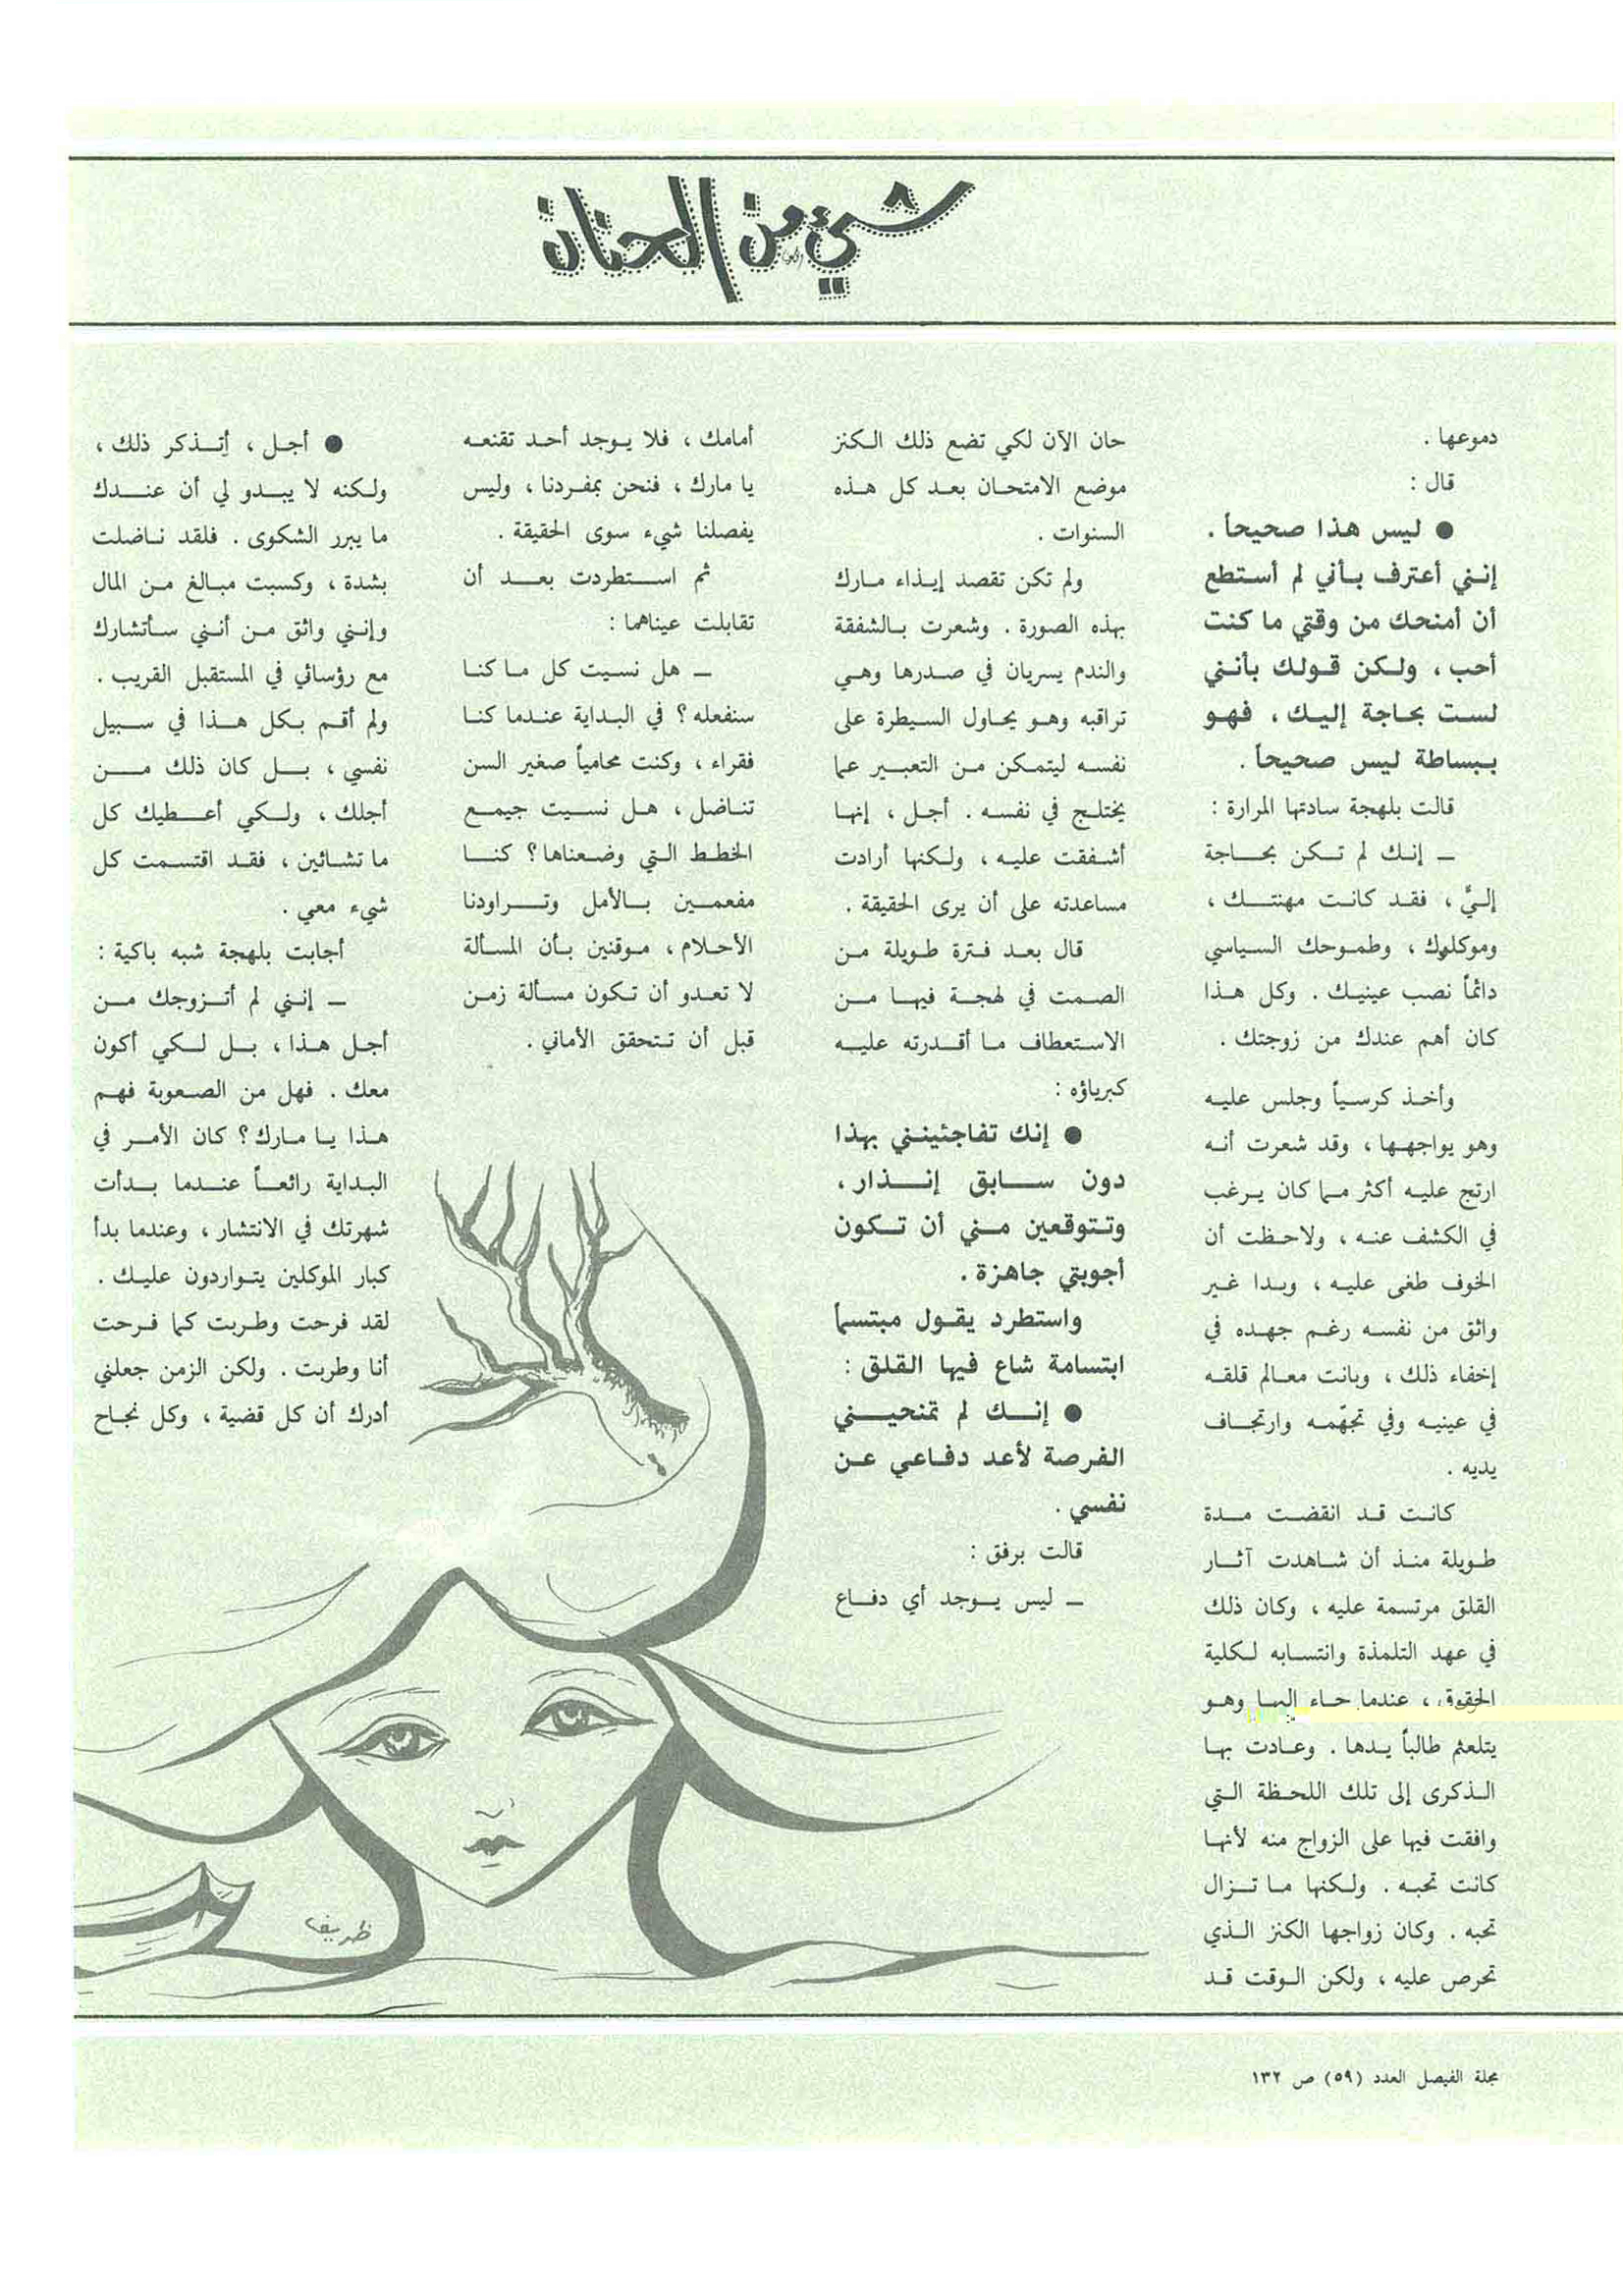 شيء من الحنان
دموعها .
قال :
● ليس هذا صحيحاً .
إنني أعترف بأني لم أستطع
أن أمنحك من وقتي ما كنت
أحب ، ولكن قولك بأنني
لست بحاجة إليك ، فهو
ببساطة ليس صحيحاً .
قالت بلهجة سادتها المرارة :
ـ إنك لم تكن بحاجة
إليَّ ، فقد كانت مهنتك ،
وموكلوك ، وطموحك السياسي
دائماً نصب عينيك . وكل هذا
كان أهم عندك من زوجتك .
وأخذ كرسياً وجلس عليه
وهو يواجهها ، وقد شعرت أنه
ارتج عليه أكثر مما كان يرغب
في الكشف عنه ، ولاحظت أن
الخوف طغى عليه ، وبدا غير
واثق من نفسه رغم جهده في
إخفاء ذلك ، وبانت معالم قلقه
في عينيه وفي تجهّمه وارتجاف
يديه .
كانت قد انقضت مدة
طويلة منذ أن شاهدت آثار
القلق مرتسمة عليه ، وكان ذلك
في عهد التلمذة وانتسابه لكلية
الحقوق ، عندما جاء إليها وهو
يتلعثم طالباً يدها . وعادت بها
الذكرى إلى تلك اللحظة التي
وافقت فيها على الزواج منه لأنها
كانت تحبه . ولكنها ما تزال
تحبه . وكان زواجها الكنز الذي
تحرص عليه ، ولكن الوقت قد
حان الآن لكي تضع ذلك الكنز
موضع الامتحان بعد كل هذه
السنوات .
ولم تكن تقصد إيذاء مارك
بهذه الصورة . وشعرت بالشفقة
والندم يسريان في صدرها وهي
تراقبه وهو يحاول السيطرة على
نفسه ليتمكن من التعبير عما
يختلج في نفسه . أجل ، إنها
أشفقت عليه ، ولكنها أرادت
مساعدته على أن يرى الحقيقة .
قال بعد فترة طويلة من
الصمت في لهجة فيها من
الاستعطاف ما أقدرته عليه
كبرياؤه :
● إنك تفاجئينني بهذا
دون سابق إنذار ،
وتتوقعين مني أن تكون
أجوبتي جاهزة .
واستطرد يقول مبتسماً
ابتسامة شاع فيها القلق :
● إنك لم تمنحيني
الفرصة لأعد دفاعي عن
نفسي .
قالت برفق :
ـ ليس يوجد أي دفاع
أمامك ، فلا يوجد أحد تقنعه
يا مارك ، فنحن بمفردنا ، وليس
يفصلنا شيء سوى الحقيقة .
ثم استطردت بعد أن
تقابلت عيناهما :
ـ هل نسيت كل ما كنا
سنفعله ؟ في البداية عندما كنا
فقراء ، وكنت محامياً صغير السن
تناضل ، هل نسيت جيمع
الخطط التي وضعناها ؟ كنا
مفعمين بالأمل وتراودنا
الأحلام ، موقنين بأن المسألة
لا تعدو أن تكون مسألة زمن
قبل أن تتحقق الأماني .
● أجل ، أتذكر ذلك ،
ولكنه لا يبدو لي أن عندك
ما يبرر الشكوى . فلقد ناضلت
بشدة ، وكسبت مبالغ من المال
وإنني واثق من أنني سأتشارك
مع رؤسائي في المستقبل القريب .
ولم أقم بكل هذا في سبيل
نفسي ، بل كان ذلك من
أجلك ، ولكي أعطيك كل
ما تشائين ، فقد اقتسمت كل
شيء معي .
أجابت بلهجة شبه باكية :
ـ إنني لم أتزوجك من
أجل هذا ، بل لكي أكون
معك . فهل من الصعوبة فهم
هذا يا مارك ؟ كان الأمر في
البداية رائعاً عندما بدأت
شهرتك في الانتشار ، وعندما بدأ
كبار الموكلين يتواردون عليك .
لقد فرحت وطربت كما فرحت
أنا وطربت . ولكن الزمن جعلني
أدرك أن كل قضية ، وكل نجاح
ظريف
مجلة الفيصل العدد (٥٩) ص ١٣٢